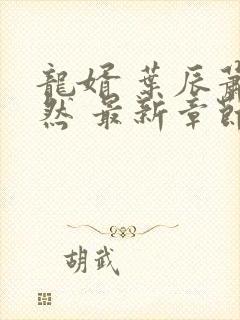 龍婿 葉辰蕭
然 最新章節
胡武